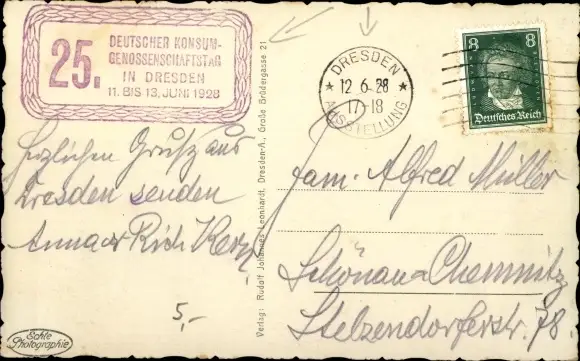 25.
DEUTSCHER KONSUM-
GENOSSENSCHAFTSTAG
IN DRESDEN
11. BIS 13. JUNI 1928
Herzlichen Gruß aus
Dresden senden
Anna u Rich
5,-
Echte
Photographie
Verlag: Rudolf Johannes Leonhardt, Dresden-A., Große Brüdergasse 21
DRESDEN
12.6.28
17-18
AUSSTELLUNG
8 8
Deutsches Reich
Fam. Alfred Müller
Schönau-Chemnitz
Stelzendorferstr. 78.